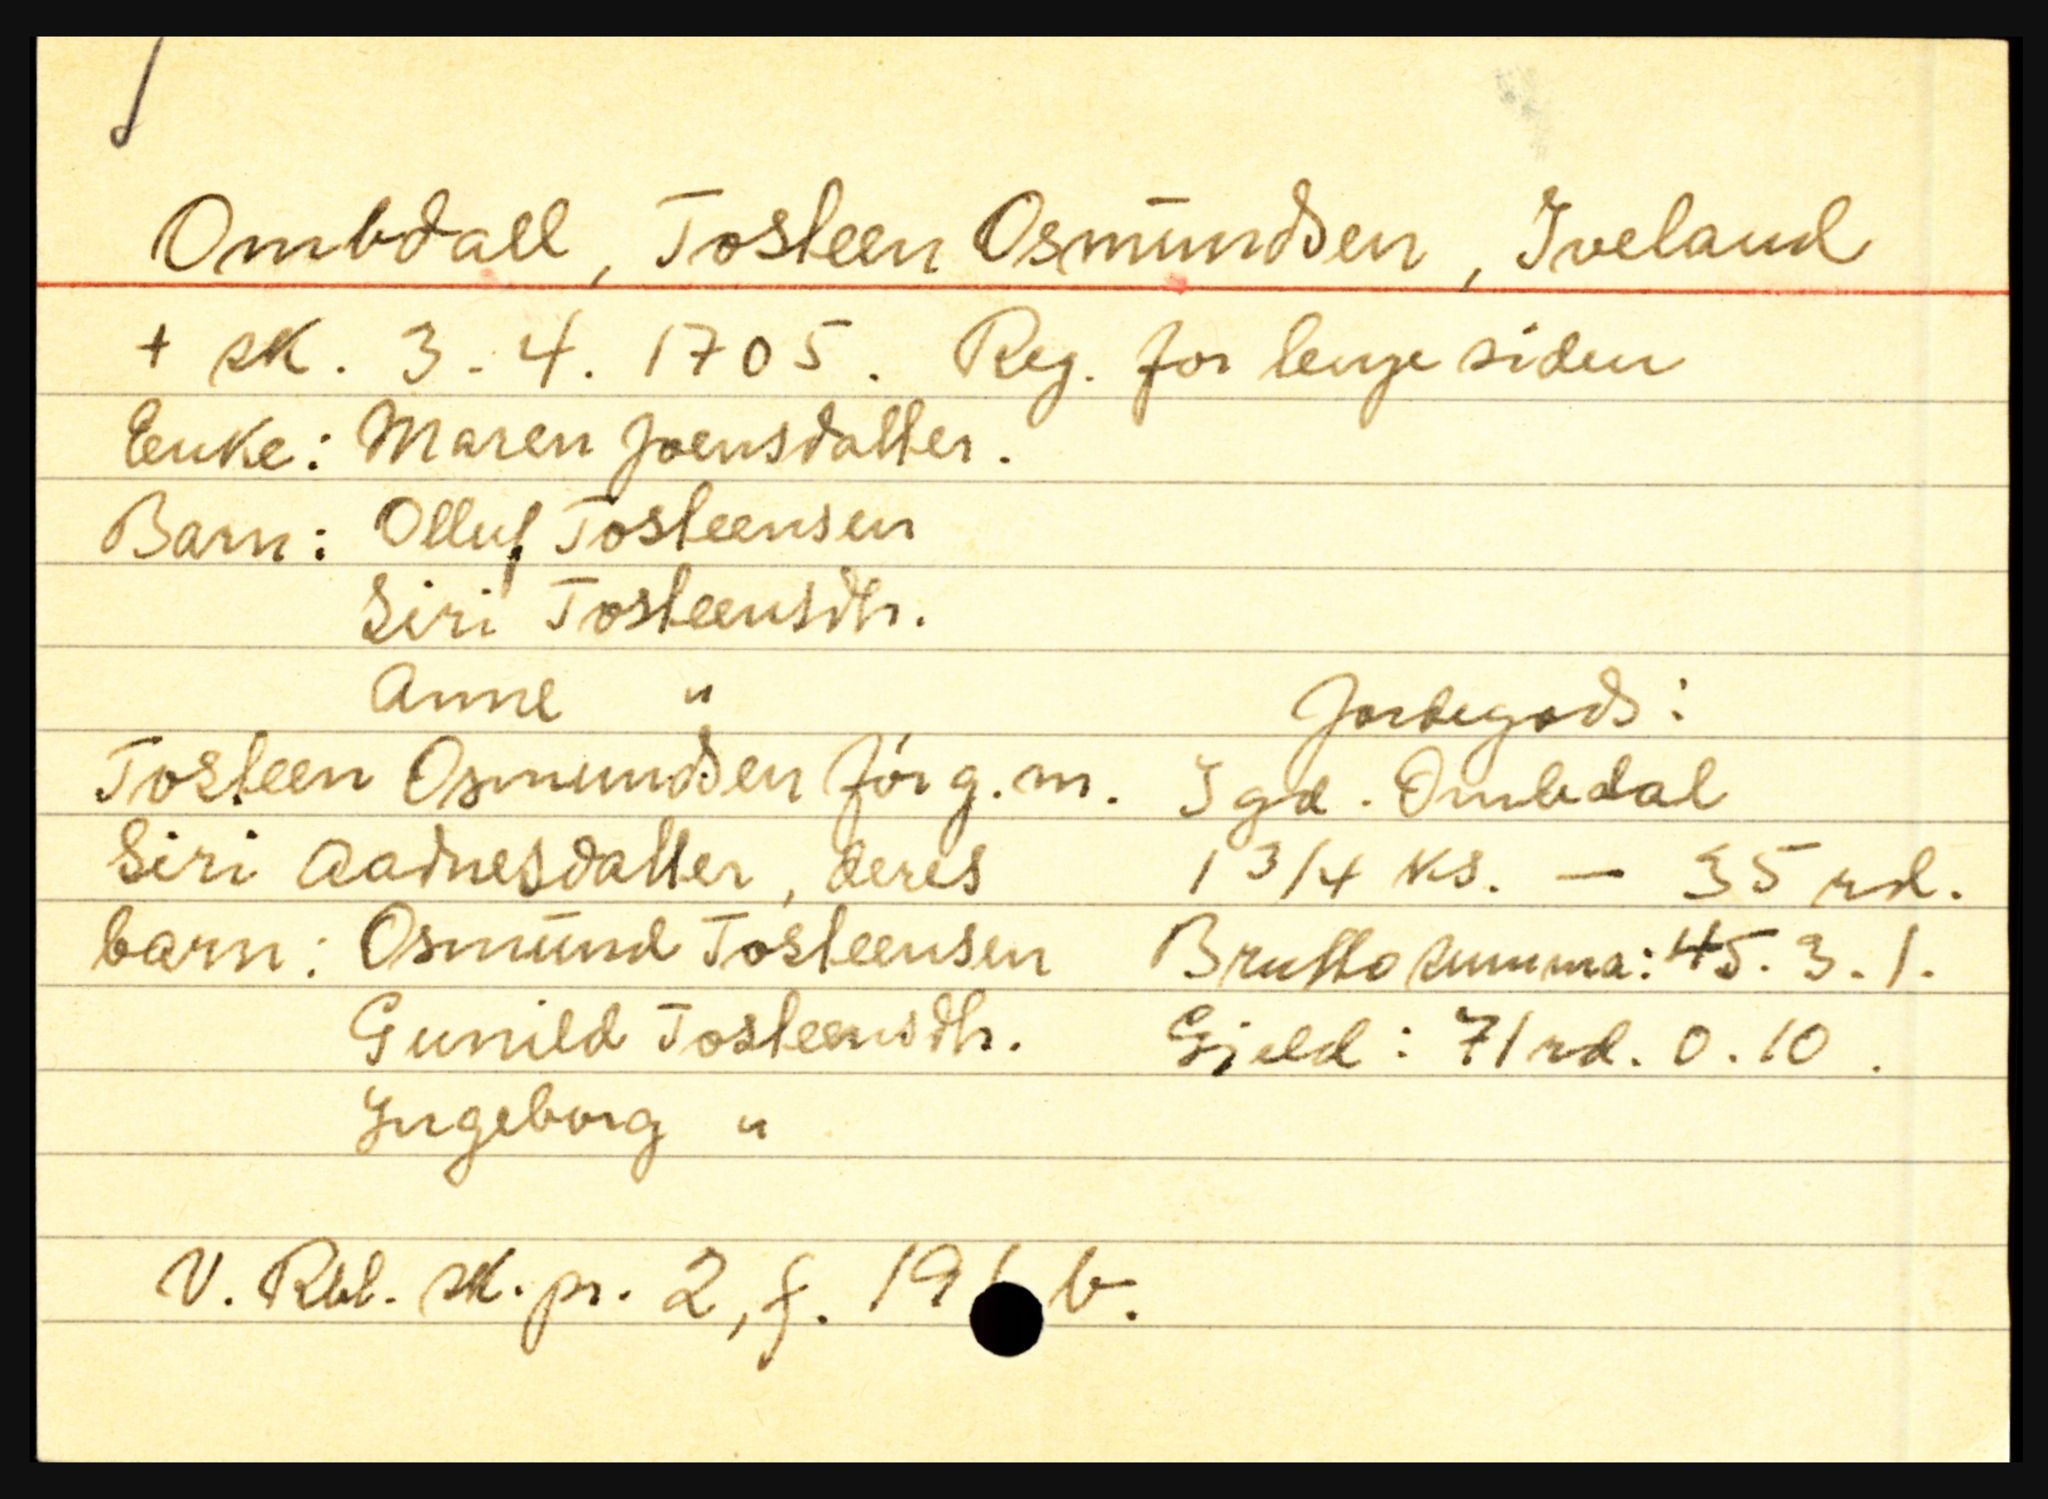 Ombdall, Tosteen Osmundsen, Iveland
+ sk. 3.4. 1705. Reg. for lenge siden
Enke: Maren Joensdatter.
Barn: Olluf Tosteensen
Siri Tosteensdtr.
Anne "
Tosteen Osmundsen før g. m.
Siri Aadnesdatter, deres
barn: Osmund Tosteensen
Gunild Tosteensdtr.
Ingeborg "
Jordegods:
I gd. Ombdal
1 3/4 ks. — 35 rd.
Brutto summa: 45. 3. 1.
Gjeld: 71 rd. 0. 10.
V. Rbl. sk. pr. 2, f. 191 b.